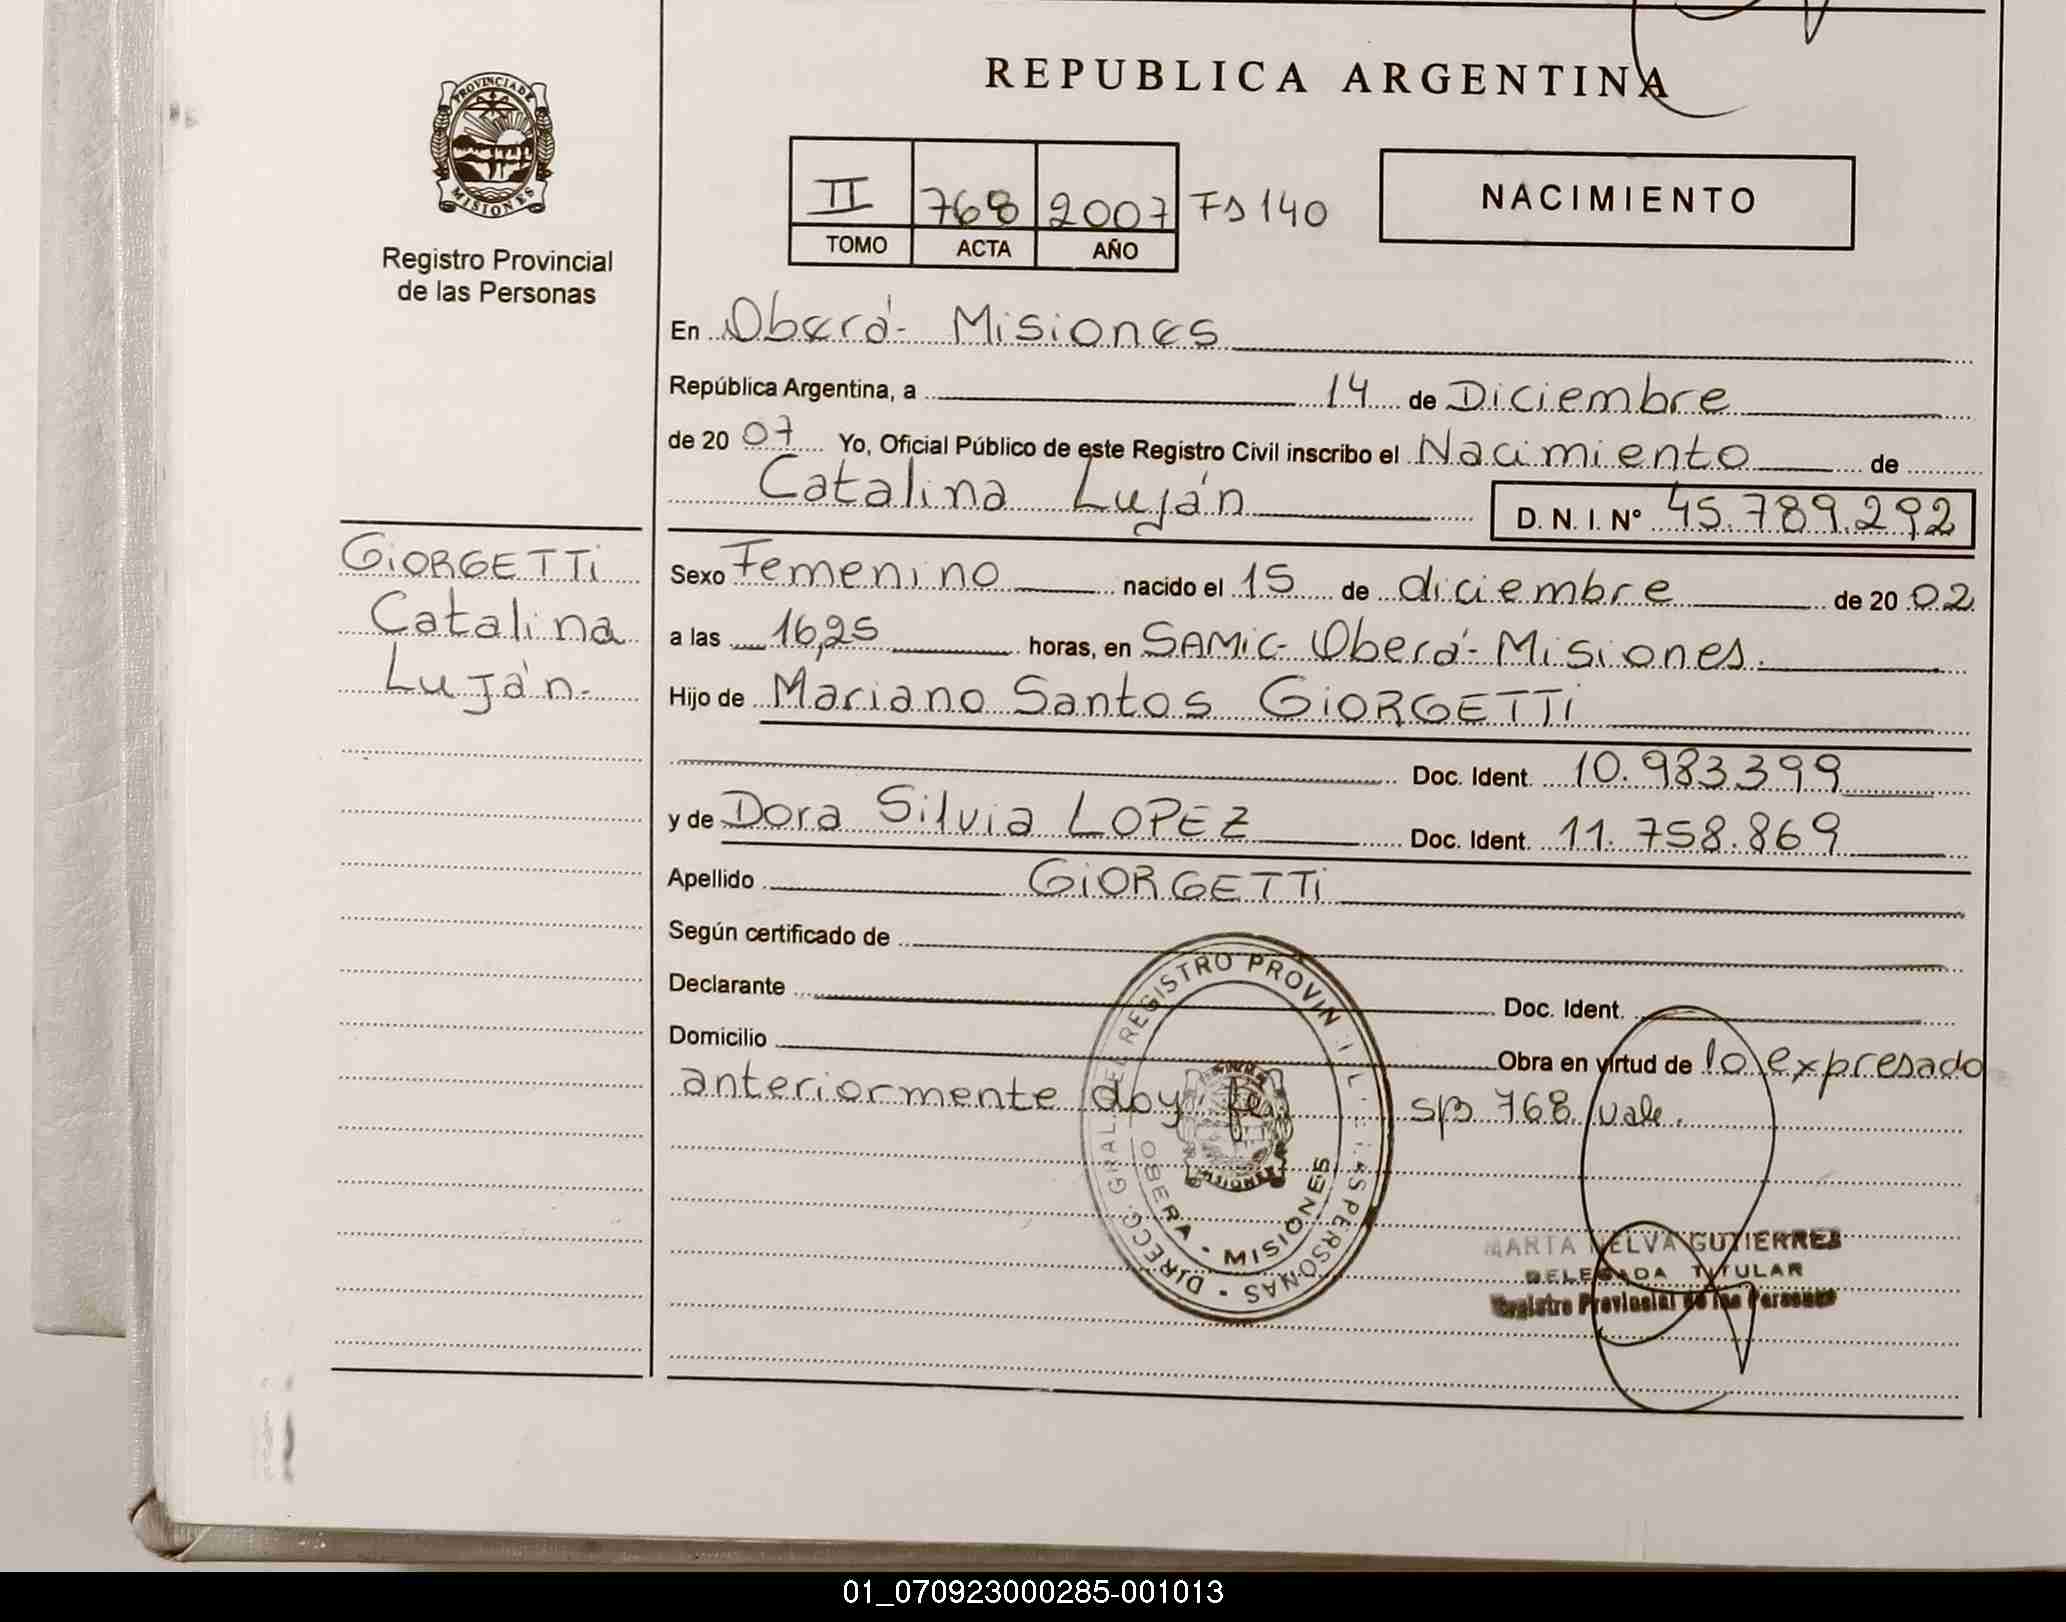 PROVINCIA DE
MISIONES
Registro Provincial
de las Personas
REPUBLICA ARGENTINA
II 768 2007 Fs 140
TOMO ACTA AÑO
NACIMIENTO
En Oberá - Misiones
República Argentina, a 14 de Diciembre
de 20 07 Yo, Oficial Público de este Registro Civil inscribo el Nacimiento de
Catalina Luján D. N. I. Nº 45.789.292
GIORGETTI
Catalina
Luján.-
Sexo Femenino nacido el 15 de diciembre de 20 02
a las 16,25 horas, en SAMIC - Oberá - Misiones.
Hijo de Mariano Santos GIORGETTI
Doc. Ident. 10.983.399
y de Dora Silvia LOPEZ Doc. Ident. 11.758.869
Apellido GIORGETTI
Según certificado de
Declarante Doc. Ident.
Domicilio Obra en virtud de lo expresado
anteriormente doy fe. s/b 768 vale.
DIRECC. GRAL. DEL REGISTRO PROVINCIAL DE LAS PERSONAS
OBERA - MISIONES
MISIONES
MARTA NELVA GUTIERRES
DELEGADA TITULAR
Registro Provincial de las Personas
01_070923000285-001013